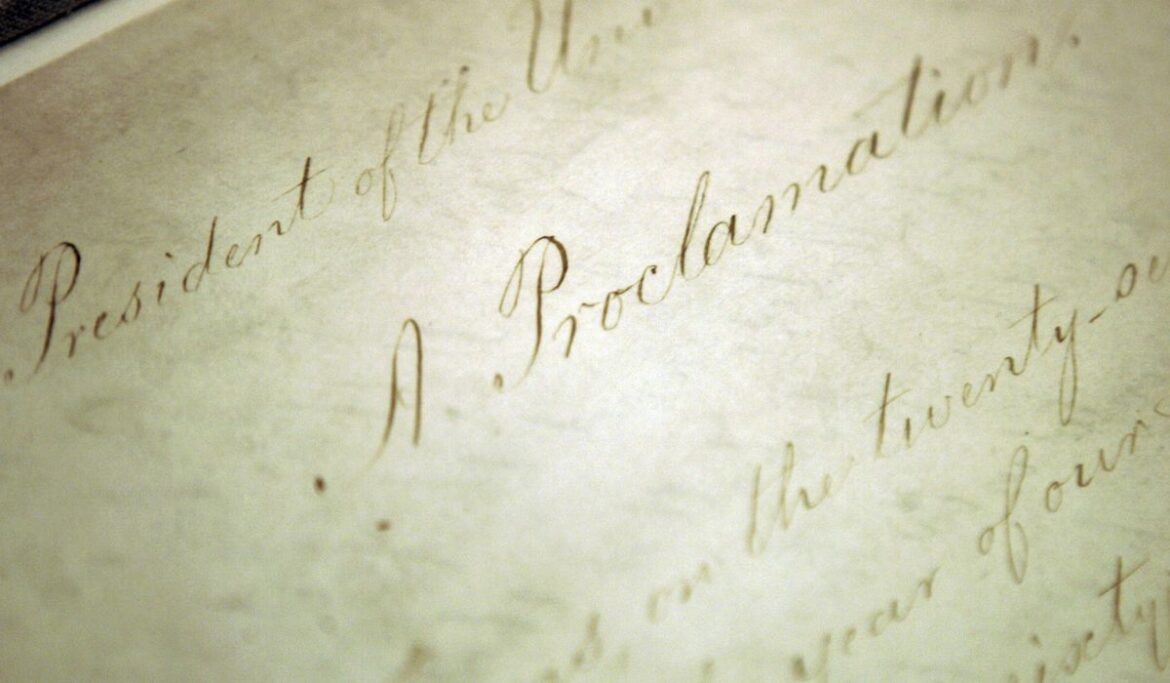 President of the Uni
A Proclamation.
as on the twenty-se
year of our
sixty